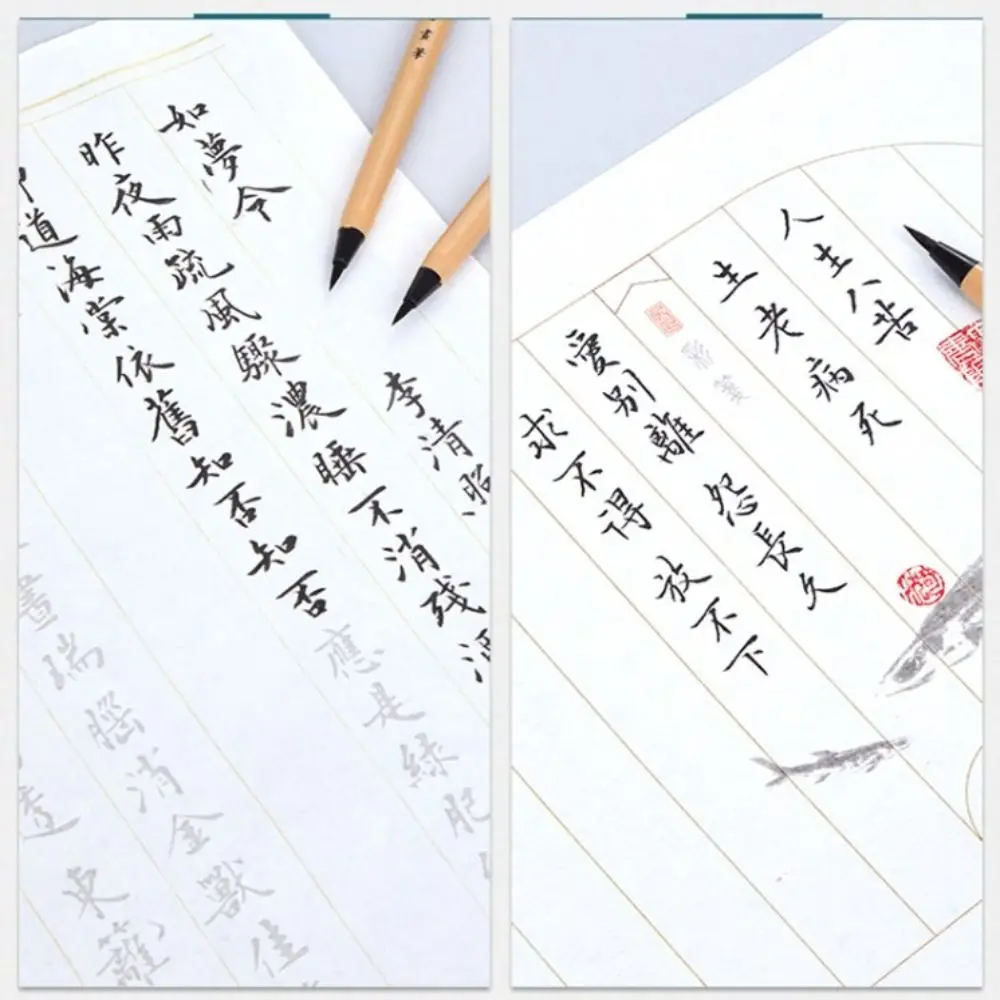 如夢令 李清照
昨夜雨疏風驟濃睡不消残酒
道海棠依舊知否知否應是綠肥
晝瑞腦消金獸佳
透東籬
人生八苦
生老病死
彩箋
愛別離 怨長久
求不得 放不下